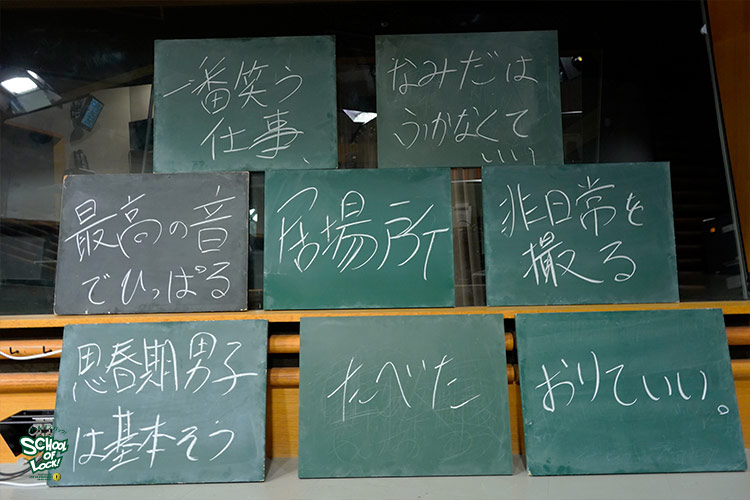 一番笑う
仕事、
なみだは
ふかなくて
いい
最高の音
でひっぱる
居場所
非日常を
撮る
思春期男子
は基本そう
たべた
おりていい。
SCHOOL
OF
LOCK!